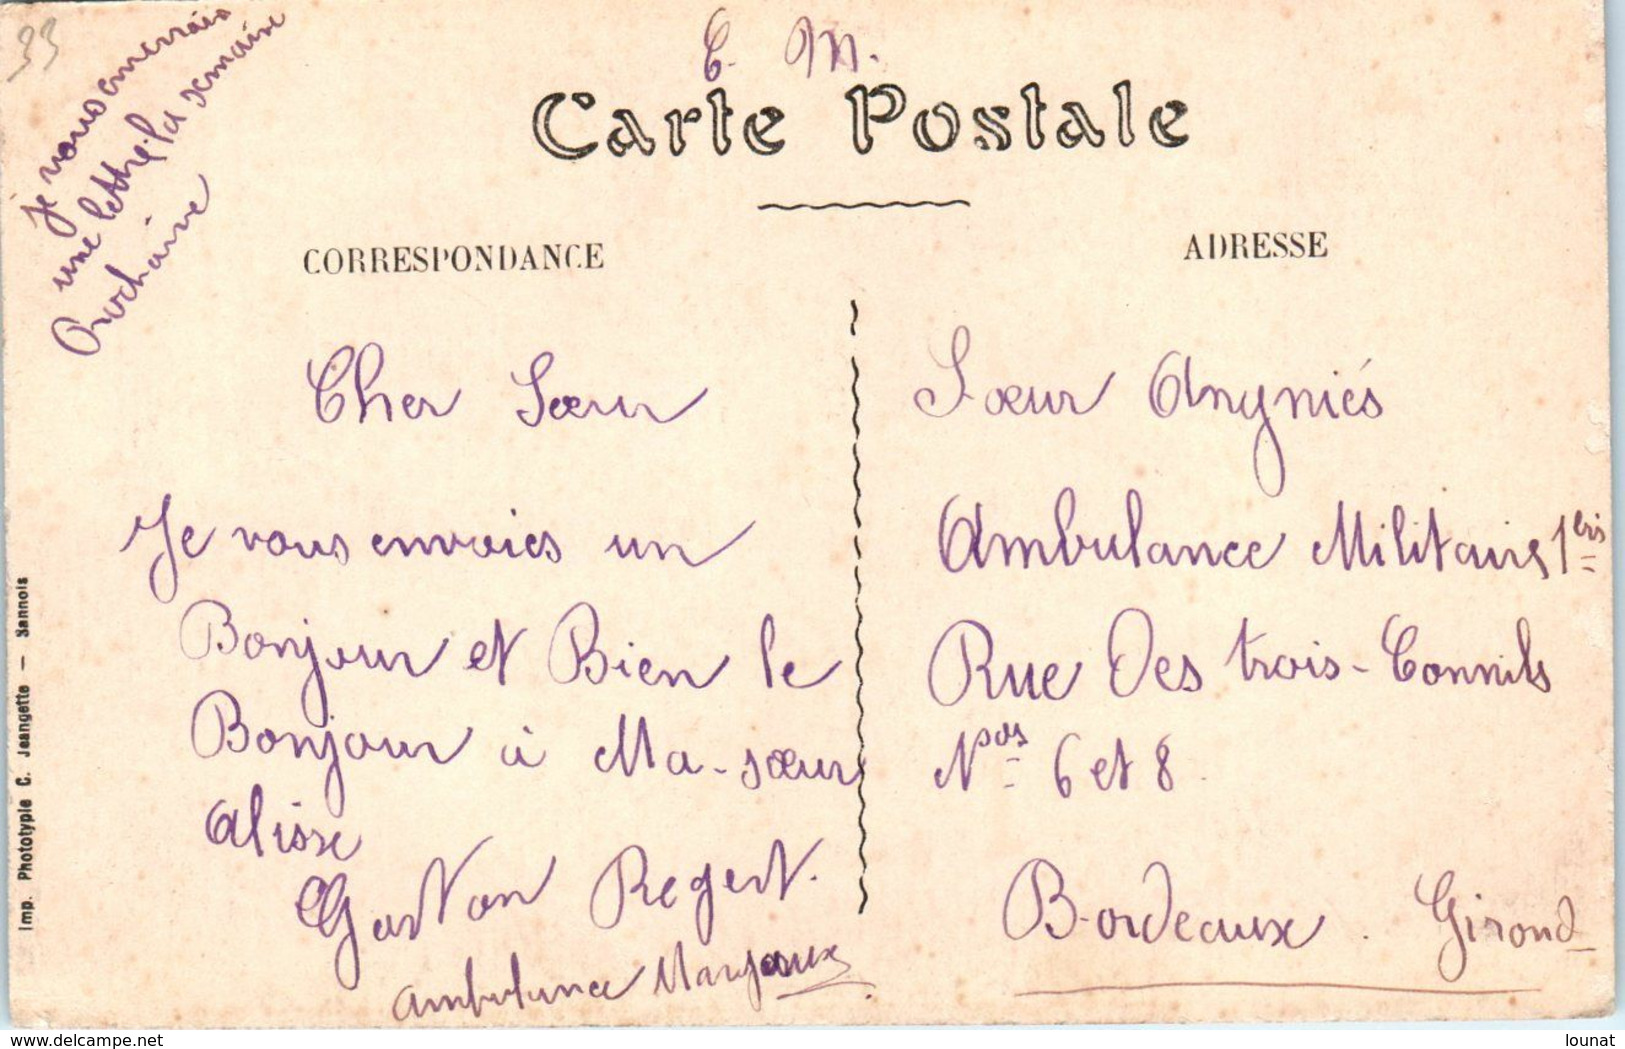 33
je vous emerrais
une lettre la semaine
Prochaine
C. M.
Carte Postale
CORRESPONDANCE
ADRESSE
Cher Sœur
Je vous envoies un
Bonjour et Bien le
Bonjour à Ma-sœur
Alisse
Gaston Regert.
Ambulance
Sœur Angniés
Ambulance Militaire 1eris
Rue Des trois-Connils
Nos 6 et 8
Bordeaux. Girond
Imp. Phototypie C. Jeangette — Sannois
delcampe.net
lounat